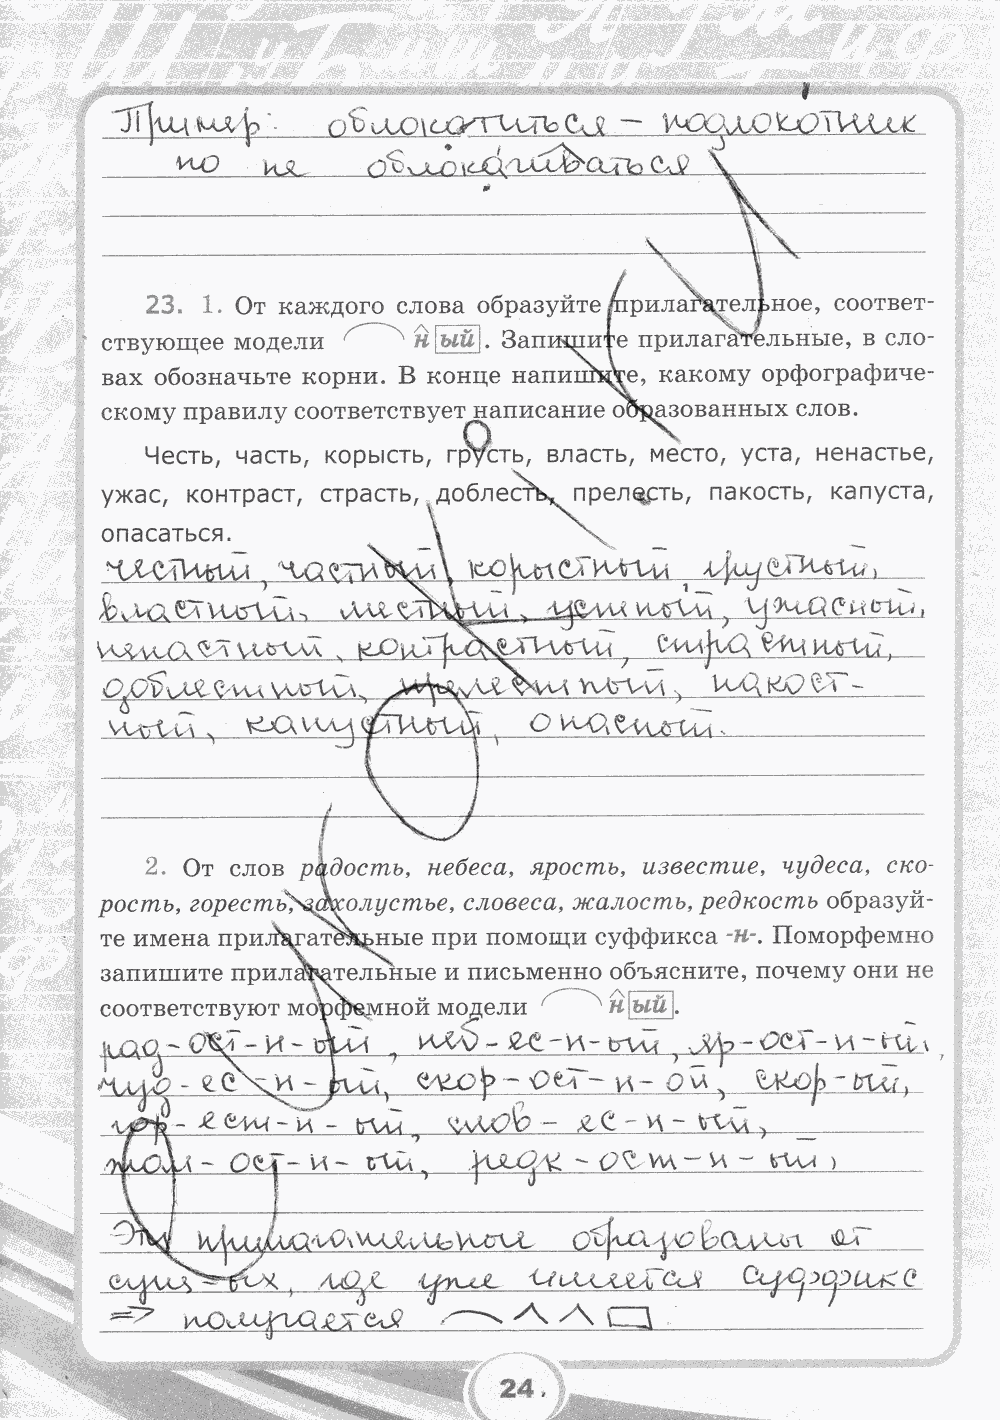 Пример: облокотиться – подлокотник
но не облокачиваться
23. 1. От каждого слова образуйте прилагательное, соответ-
ствующее модели н ый. Запишите прилагательные, в сло-
вах обозначьте корни. В конце напишите, какому орфографиче-
скому правилу соответствует написание образованных слов.
Честь, часть, корысть, грусть, власть, место, уста, ненастье,
ужас, контраст, страсть, доблесть, прелесть, пакость, капуста,
опасаться.
честный, частный, корыстный, грустный,
властный, местный, устный, ужасный,
ненастный, контрастный, страстный,
доблестный, прелестный, пакост-
ный, капустный, опасный.
2. От слов радость, небеса, ярость, известие, чудеса, ско-
рость, горесть, захолустье, словеса, жалость, редкость образуй-
те имена прилагательные при помощи суффикса -н-. Поморфемно
запишите прилагательные и письменно объясните, почему они не
соответствуют морфемной модели н ый.
рад-ост-н-ый, неб-ес-н-ый, яр-ост-н-ый,
чуд-ес-н-ый, скор-ост-н-ой, скор-ый,
гор-ест-н-ый, слов-ес-н-ый,
жал-ост-н-ый, редк-ост-н-ый,
Эти прилагательные образованы от
сущ-ых, где уже имеется суффикс
=> получается
24
ЮКОКЛ.КУ